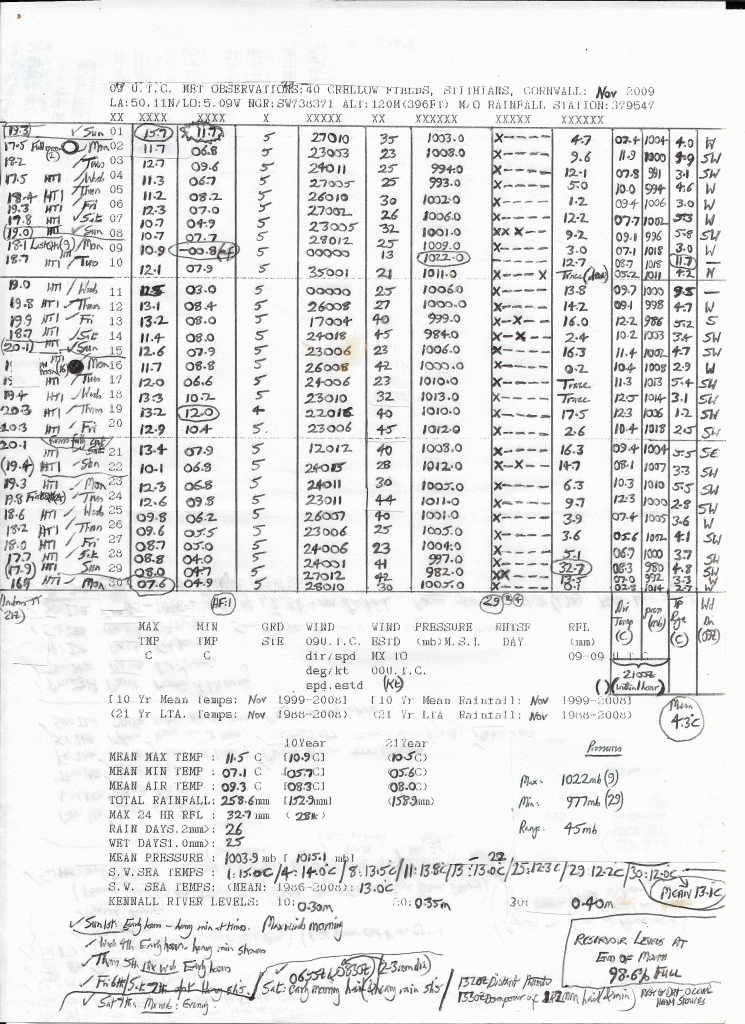 09 U.T.C. MET OBSERVATIONS:40 CRELLOW FIELDS, STITHIANS, CORNWALL: Nov 2009
LA:50.11N/LO:5.09W NGR:SW738371 ALT:120M(396FT) M/O RAINFALL STATION:379547
XX XXXX XXXX X XXXXX XX XXXXXX XXXXX XXXXXX
(19.3) ✓ Sun 01 15.7 11.7 5 27010 35 1003.0 X----- 4.7 07.4 1004 4.0 W
17.5 Mon 02 11.7 06.8 5 23053 23 1008.0 X----- 9.6 11.9 1000 9.9 SW
18.2 / Tues 03 12.7 09.6 5 24011 25 994.0 X----- 12.1 07.8 991 3.1 SW
17.5 HTI / Wed 04 11.3 06.7 5 27005 25 993.0 X----- 5.0 10.0 994 4.6 W
18.4 HTI / Thurs 05 11.2 08.2 5 26010 30 1002.0 X----- 1.2 09.4 1006 3.0 W
19.3 HTI / Fri 06 12.3 07.0 5 27002 26 1006.0 X----- 12.2 07.7 1002 5.3 W
17.8 HTI ✓ Sat 07 10.7 07.7 5 23005 32 1001.0 XXX--- 9.2 09.1 996 5.8 SW
(19.0) HTI / Sun 08 10.9 -00.8 5 28012 25 1009.0 X----- 3.0 07.1 1018 3.0 W
18.1 / Mon 09 00000 13 1022.0 X----- 12.7 08.7 1018 11.7
18.7 HTI / Tues 10 12.1 07.9 5 35001 21 1011.0 X----X Trace 05.2 1011 4.2 N
19.0 HTI / Wed 11 12.5 03.0 5 00000 25 1006.0 X----- 13.8 09.7 1000 9.5 —
19.8 HTI / Thurs 12 13.1 08.4 5 26008 27 1000.0 X----- 14.2 09.1 998 4.7 W
19.9 HTI / Fri 13 13.2 08.0 5 17004 40 999.0 X-X--- 16.0 12.2 986 5.2 S
18.7 HTI / Sat 14 11.4 08.0 5 24018 45 984.0 X-X--- 2.4 10.2 1003 3.4 SW
(20.1) HTI ✓ Sun 15 12.6 07.9 5 23006 23 1006.0 X----- 16.3 11.4 1002 4.7 SW
Mon 16 11.7 08.8 5 26008 42 1000.0 X----- 0.2 10.4 1008 2.9 W
HTI / Tues 17 12.0 06.6 5 24006 23 1010.0 X----- Trace 11.3 1013 5.4 SW
19.4 HTI / Wed 18 13.3 10.2 5 23010 32 1013.0 X----- Trace 12.5 1014 3.1 SW
20.3 HTI / Thurs 19 13.2 12.0 4 22016 40 1010.0 X----- 17.5 12.3 1006 1.2 SW
20.3 HTI / Fri 20 12.9 10.4 5. 23006 45 1012.0 X----- 2.6 10.4 1018 2.5 SW
20.1 21 13.4 07.9 5 12012 40 1008.0 X----- 16.3 09.4 1004 5.5 SE
(19.4) HTI / Sun 22 10.1 06.8 5 24015 28 1012.0 X--X-- 14.7 08.1 1007 3.3 SW
19.3 HTI / Mon 23 12.3 06.8 5 24011 30 1005.0 X----- 6.3 10.3 1010 5.5 SW
19.8 / Tues 24 12.6 09.8 5 23011 44 1011.0 X----- 9.7 12.3 1000 2.8 SW
18.6 HTI / Wed 25 09.8 06.2 5 26007 40 1001.0 X----- 3.9 07.4 1005 3.6 W
18.2 HTI / Thurs 26 09.6 05.5 5 23006 25 1002.0 X----- 3.6 05.6 1002 4.1 SW
18.0 HTI / Fri 27 08.7 05.0 5 24006 23 1004.0 X----- 5.1 06.7 1000 3.7
17.7 HTI / Sat 28 08.8 04.0 5 24001 41 997.0 X----- 32.7 08.3 980 4.8 SW
(17.9) HTI ✓ Sun 29 08.0 04.7 5 27012 42 982.0 XX---- 13.5 07.0 992 3.3 W
HTI / Mon 30 07.6 04.9 5 28010 30 1005.0 X----- 0.1 02.8 1014 2.7 SW
AF:1
MAX MIN GRD WIND WIND PRESSURE RHTSF RFL
TMP TMP STE 09U.T.C. ESTD (mb)M.S.L DAY (mm)
C C dir/spd MX 10 09-09 U.T.C
deg/kt 00U.T.C.
spd.estd (Kt)
Dir Temp (C) pressn (mb) Tp Rge (C) Wd Dn
2100Z (within 1 hour)
[10 Yr Mean Temps: Nov 1999-2008] [10 Yr Mean Rainfall: Nov 1999-2008]
(21 Yr LTA. Temps: Nov 1988-2008) (21 Yr LTA Rainfall: Nov 1988-2008)
Mean 4.3c
10Year 21Year
MEAN MAX TEMP : 11.5 C [10.9C] (10.5C)
MEAN MIN TEMP : 07.1 C [05.7C] (05.6C)
MEAN AIR TEMP : 09.3 C [08.3C] (08.0C)
TOTAL RAINFALL: 258.6mm [152.9mm] (158.9mm)
MAX 24 HR RFL : 32.7mm (28th)
RAIN DAYS.2mm>: 26
WET DAYS1.0mm>: 25
MEAN PRESSURE : 1003.9 mb [ 1015.1 mb]
Pressures
Max: 1022mb (9)
Min: 977mb (29)
Range: 45mb
S.W.SEA TEMPS : 1:15.0c/4:14.0c/8:13.5c/11:13.8c/13:13.0c/25:12.3c/29:12.2c/30:12.0c
S.W. SEA TEMPS: (MEAN: 1986-2008): 13.0c
MEAN 13.1c
KENNALL RIVER LEVELS: 10: 0.30m 20: 0.35m 30: 0.40m
✓ Sun 1st: Early hours - heavy rain at times. Max winds morning
✓ Wed 4th Early hours. heavy rain showers
✓ Thurs 5th Early hours
✓ Sat 7th: Evening
RESERVOIR LEVELS AT
END OF MONTH
98.6% FULL